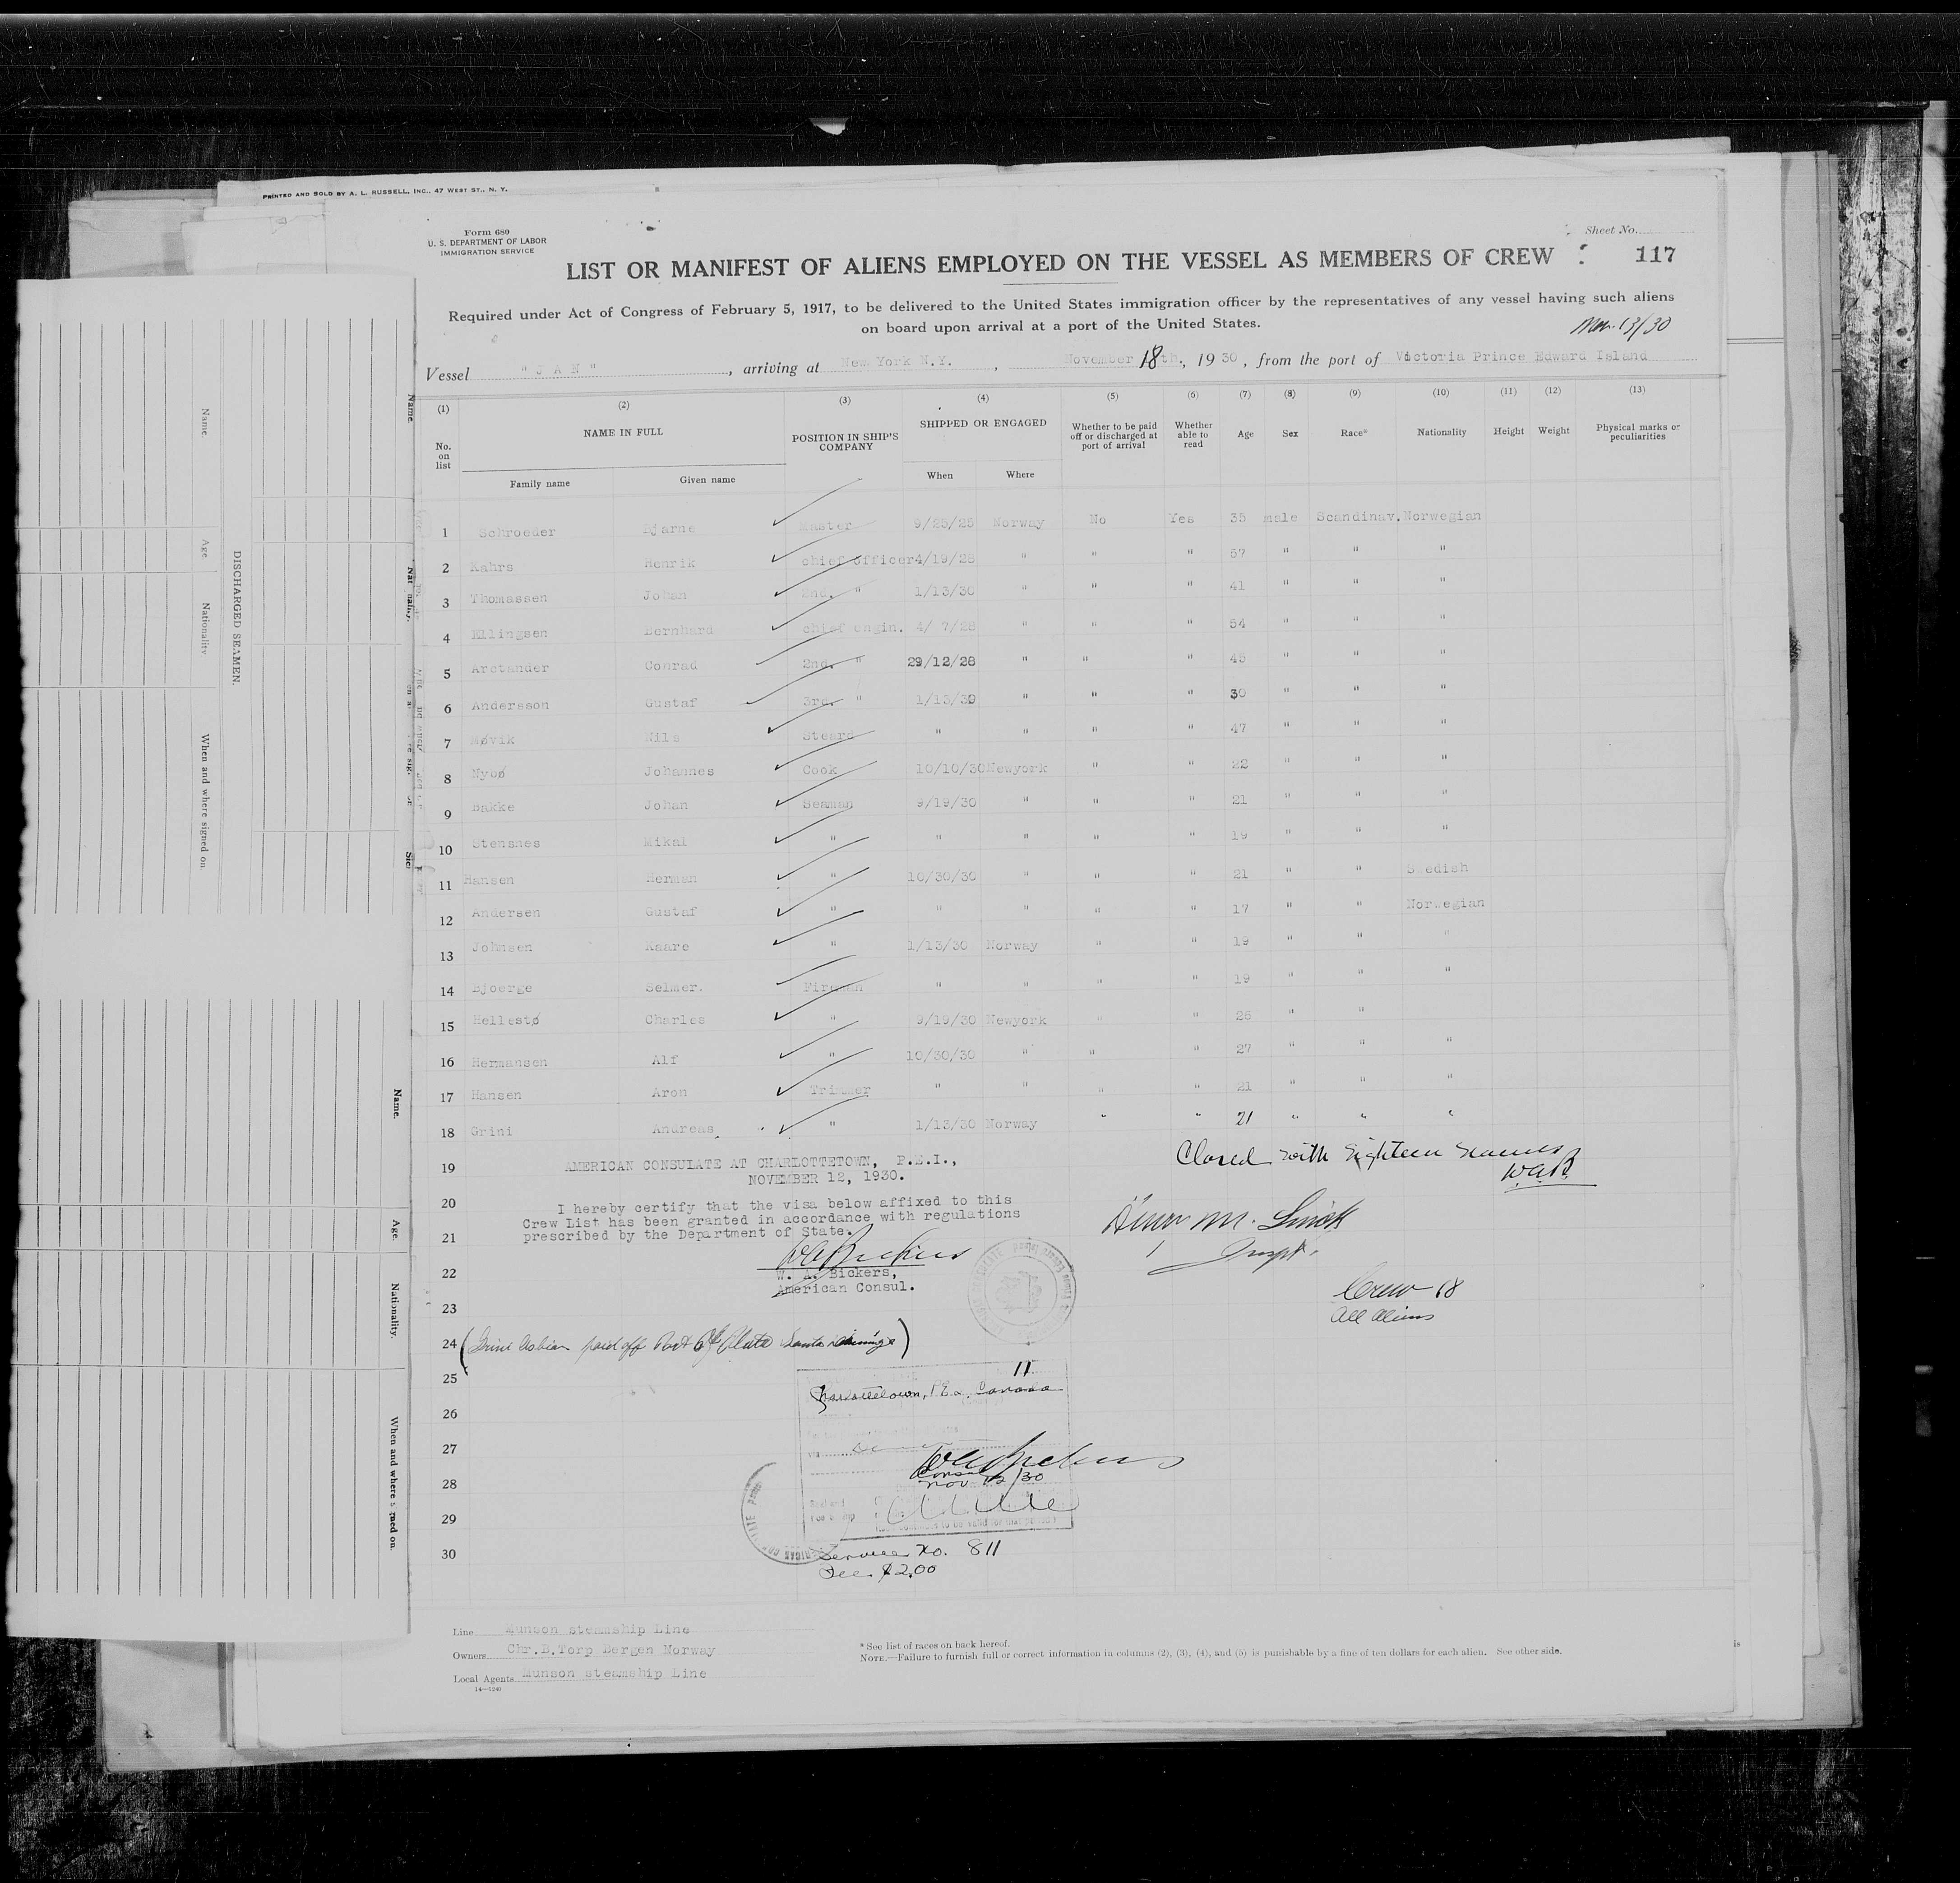 PRINTED AND SOLD BY A. L. RUSSELL, INC., 47 WEST ST., N. Y.
Form 680
U. S. DEPARTMENT OF LABOR
IMMIGRATION SERVICE
Sheet No.
LIST OR MANIFEST OF ALIENS EMPLOYED ON THE VESSEL AS MEMBERS OF CREW 117
Required under Act of Congress of February 5, 1917, to be delivered to the United States immigration officer by the representatives of any vessel having such aliens
on board upon arrival at a port of the United States.
13/30
Vessel "JAN", arriving at New York N.Y., November 18th, 1930, from the port of Victoria Prince Edward Island
(1) (2) (3) (4) (5) (6) (7) (8) (9) (10) (11) (12) (13)
No. on list NAME IN FULL POSITION IN SHIP'S COMPANY SHIPPED OR ENGAGED Whether to be paid off or discharged at port of arrival Whether able to read Age Sex Race* Nationality Height Weight Physical marks or peculiarities
Family name Given name When Where
1 Schroeder Bjarne Master 9/25/25 Norway No Yes 35 male Scandinav. Norwegian
2 Kahrs Henrik chief officer 4/19/28 " " " 57 " " "
3 Thomassen Johan 2nd. " 1/13/30 " " " 41 " " "
4 Ellingsen Bernhard chief engin. 4/ 7/28 " " " 54 " " "
5 Arctander Conrad 2nd. " 29/12/28 " " " 45 " " "
6 Andersson Gustaf 3rd. " 1/13/30 " " " 30 " " "
7 Møvik Nils Steard " " " " 47 " " "
8 Nybø Johannes Cook 10/10/30 Newyork " " 22 " " "
9 Bakke Johan Seaman 9/19/30 " " " 21 " " "
10 Stensnes Mikal " " " " " 19 " " "
11 Hansen Herman " 10/30/30 " " " 21 " " Swedish
12 Andersen Gustaf " " " " " 17 " " Norwegian
13 Johnsen Kaare " 1/13/30 Norway " " 19 " " "
14 Bjoerge Selmer. Fireman " " " " 19 " " "
15 Hellestø Charles " 9/19/30 Newyork " " 26 " "
16 Hermansen Alf " 10/30/30 " " " 27 " " "
17 Hansen Aron Trimmer " " " " 21 " " "
18 Grini Andreas " 1/13/30 Norway " " 21 " " "
Closed with Eighteen names
W.A.B.
19 AMERICAN CONSULATE AT CHARLOTTETOWN, P.E.I.,
NOVEMBER 12, 1930.
20 I hereby certify that the visa below affixed to this
Crew List has been granted in accordance with regulations
21 prescribed by the Department of State.
Inspt.
22 W. A. Bickers,
American Consul.
Crew 18
All Aliens
23
24 paid off Port
25 Charlottetown, P.E.I. Canada
26
27
28 Consul
Nov 12/30
29
30 Service No. 811
Fee $2.00
Line Munson steamship Line
Owners Chr.B.Torp Bergen Norway
Local Agents Munson steamship Line
14—1240
* See list of races on back hereof.
NOTE.—Failure to furnish full or correct information in columns (2), (3), (4), and (5) is punishable by a fine of ten dollars for each alien. See other side.
DISCHARGED SEAMEN.
Name. Age. Nationality. When and where signed on.
Name. Age. Nationality. When and where signed on.